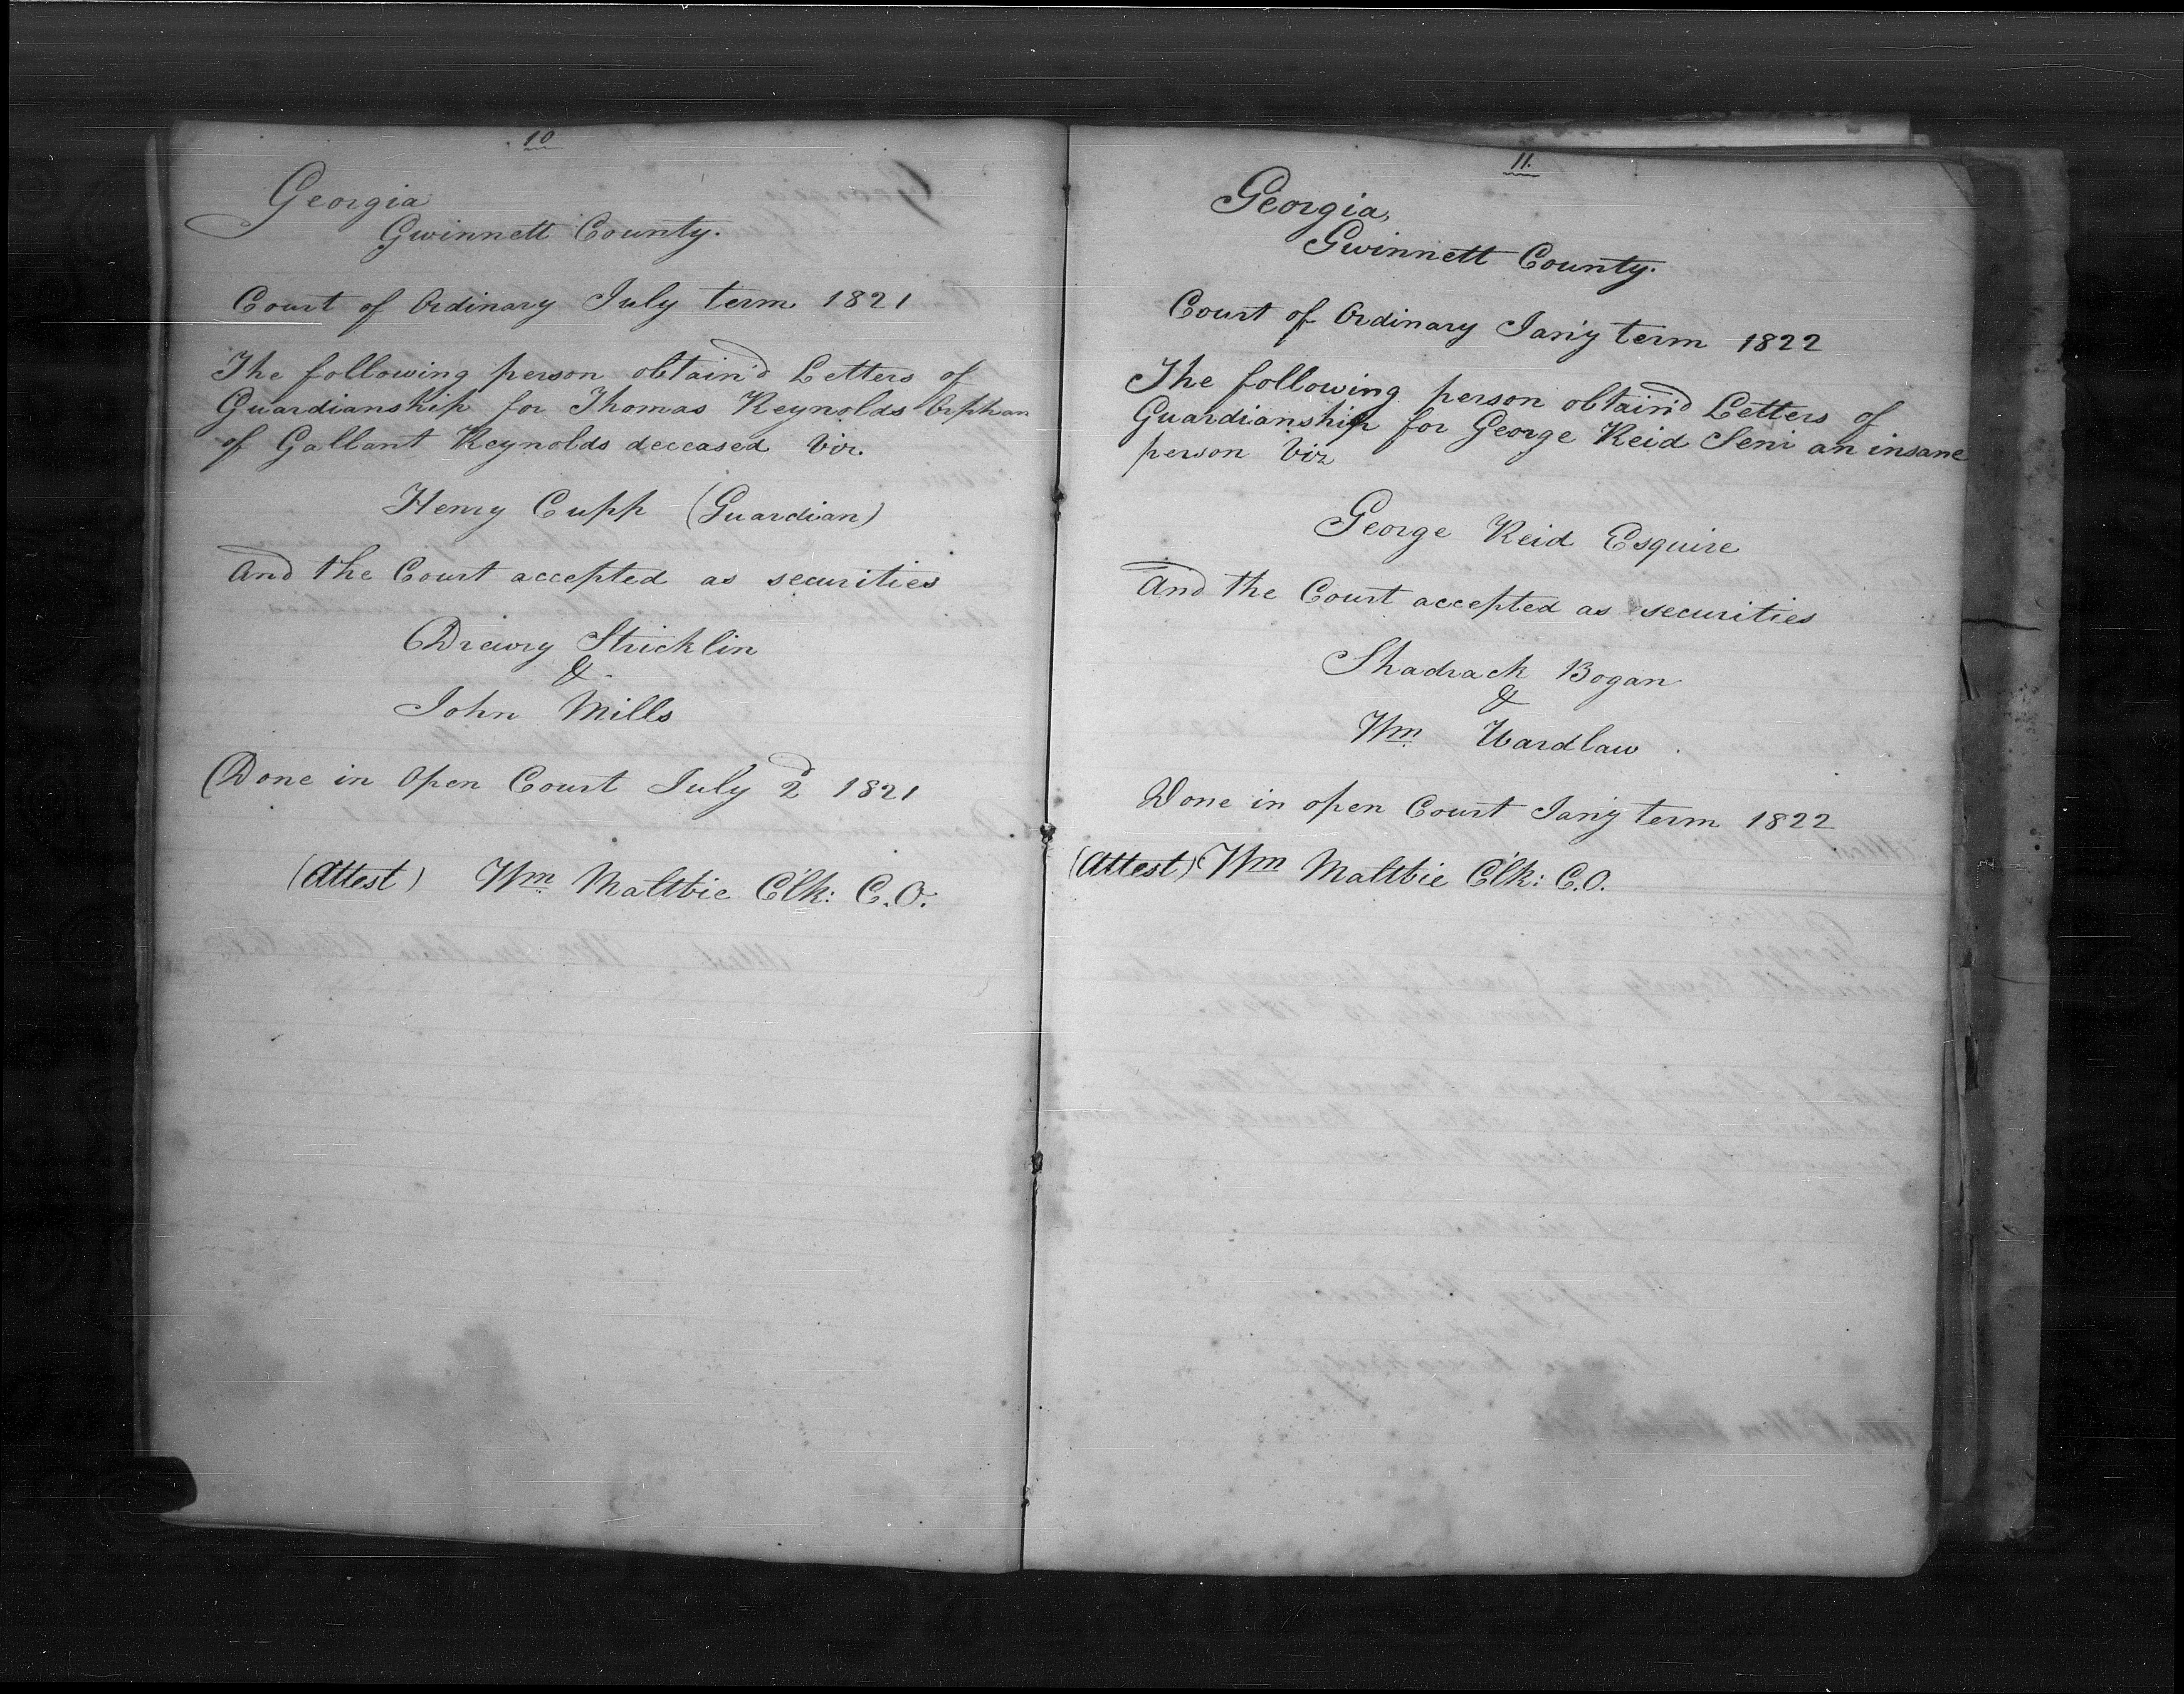 10
Georgia
Gwinnett County.
Court of Ordinary July term 1821
The following person obtain'd Letters of
Guardianship for Thomas Reynolds Orphan
of Gallant Reynolds deceased Viz.
Henry Cupp (Guardian)
And the Court accepted as securities
Drewry Stricklin
&
John Mills
Done in Open Court July 2d 1821
(Attest) Wm. Maltbie Clk: C.O.
11.
Georgia,
Gwinnett County.
Court of Ordinary Jan'y term 1822
The following person obtain'd Letters of
Guardianship for George Reid Senr an insane
person Viz
George Reid Esquire
And the Court accepted as securities
Shadrack Bogan
&
Wm. Wardlaw
Done in open Court Jan'y term 1822
(Attest) Wm Maltbie Clk: C.O.